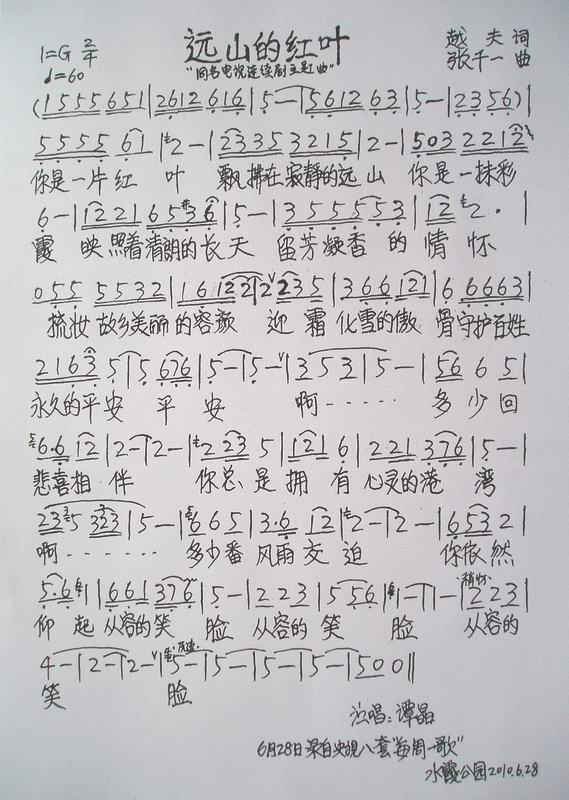 远山的红叶
1=G 2/4
♩=60
"同名电视连续剧主题曲"
越 夫 词
张千一 曲
(1555 651|2612 616|5—|5612 63|5—|2356)|
5555 61|2—|2335 3215|2—|503 2212|
你是一片红 叶 飘拂在寂静的远 山 你是一抹彩
6—|1221 6536|5—|355553|12 2.|
霞 映照着清朗的长 天 留芳凝香 的 情 怀
055 5532|161221|2 235|366 121|6 6663|
梳妆 故乡美丽的容颜 迎 霜 化雪的傲 骨守护百姓
2163 5|5 676|5—|5—|353|5—|56 6 5|
永久的平 安 平 安 啊······ 多 少 回
6·6 12|2—|2—|2 23 5|121 6|221 376|5—|
悲喜相 伴 你总 是 拥 有 心灵的港 湾
235 323|5—|665|3·6 12|2—|2—|653 2|
啊······· 多少番 风雨 交 迫 你依 然
5·6 1|661 376|5—|223|5 56|1—|1—|223|
稍怀
仰 起 从容的笑 脸 从容的 笑 脸 从容的
4—|2—|2—|5—|5—|5—|5—|500‖
笑 脸
演唱:谭晶
6月28日录自央视八套"每周一歌"
水霞公园2010.6.28